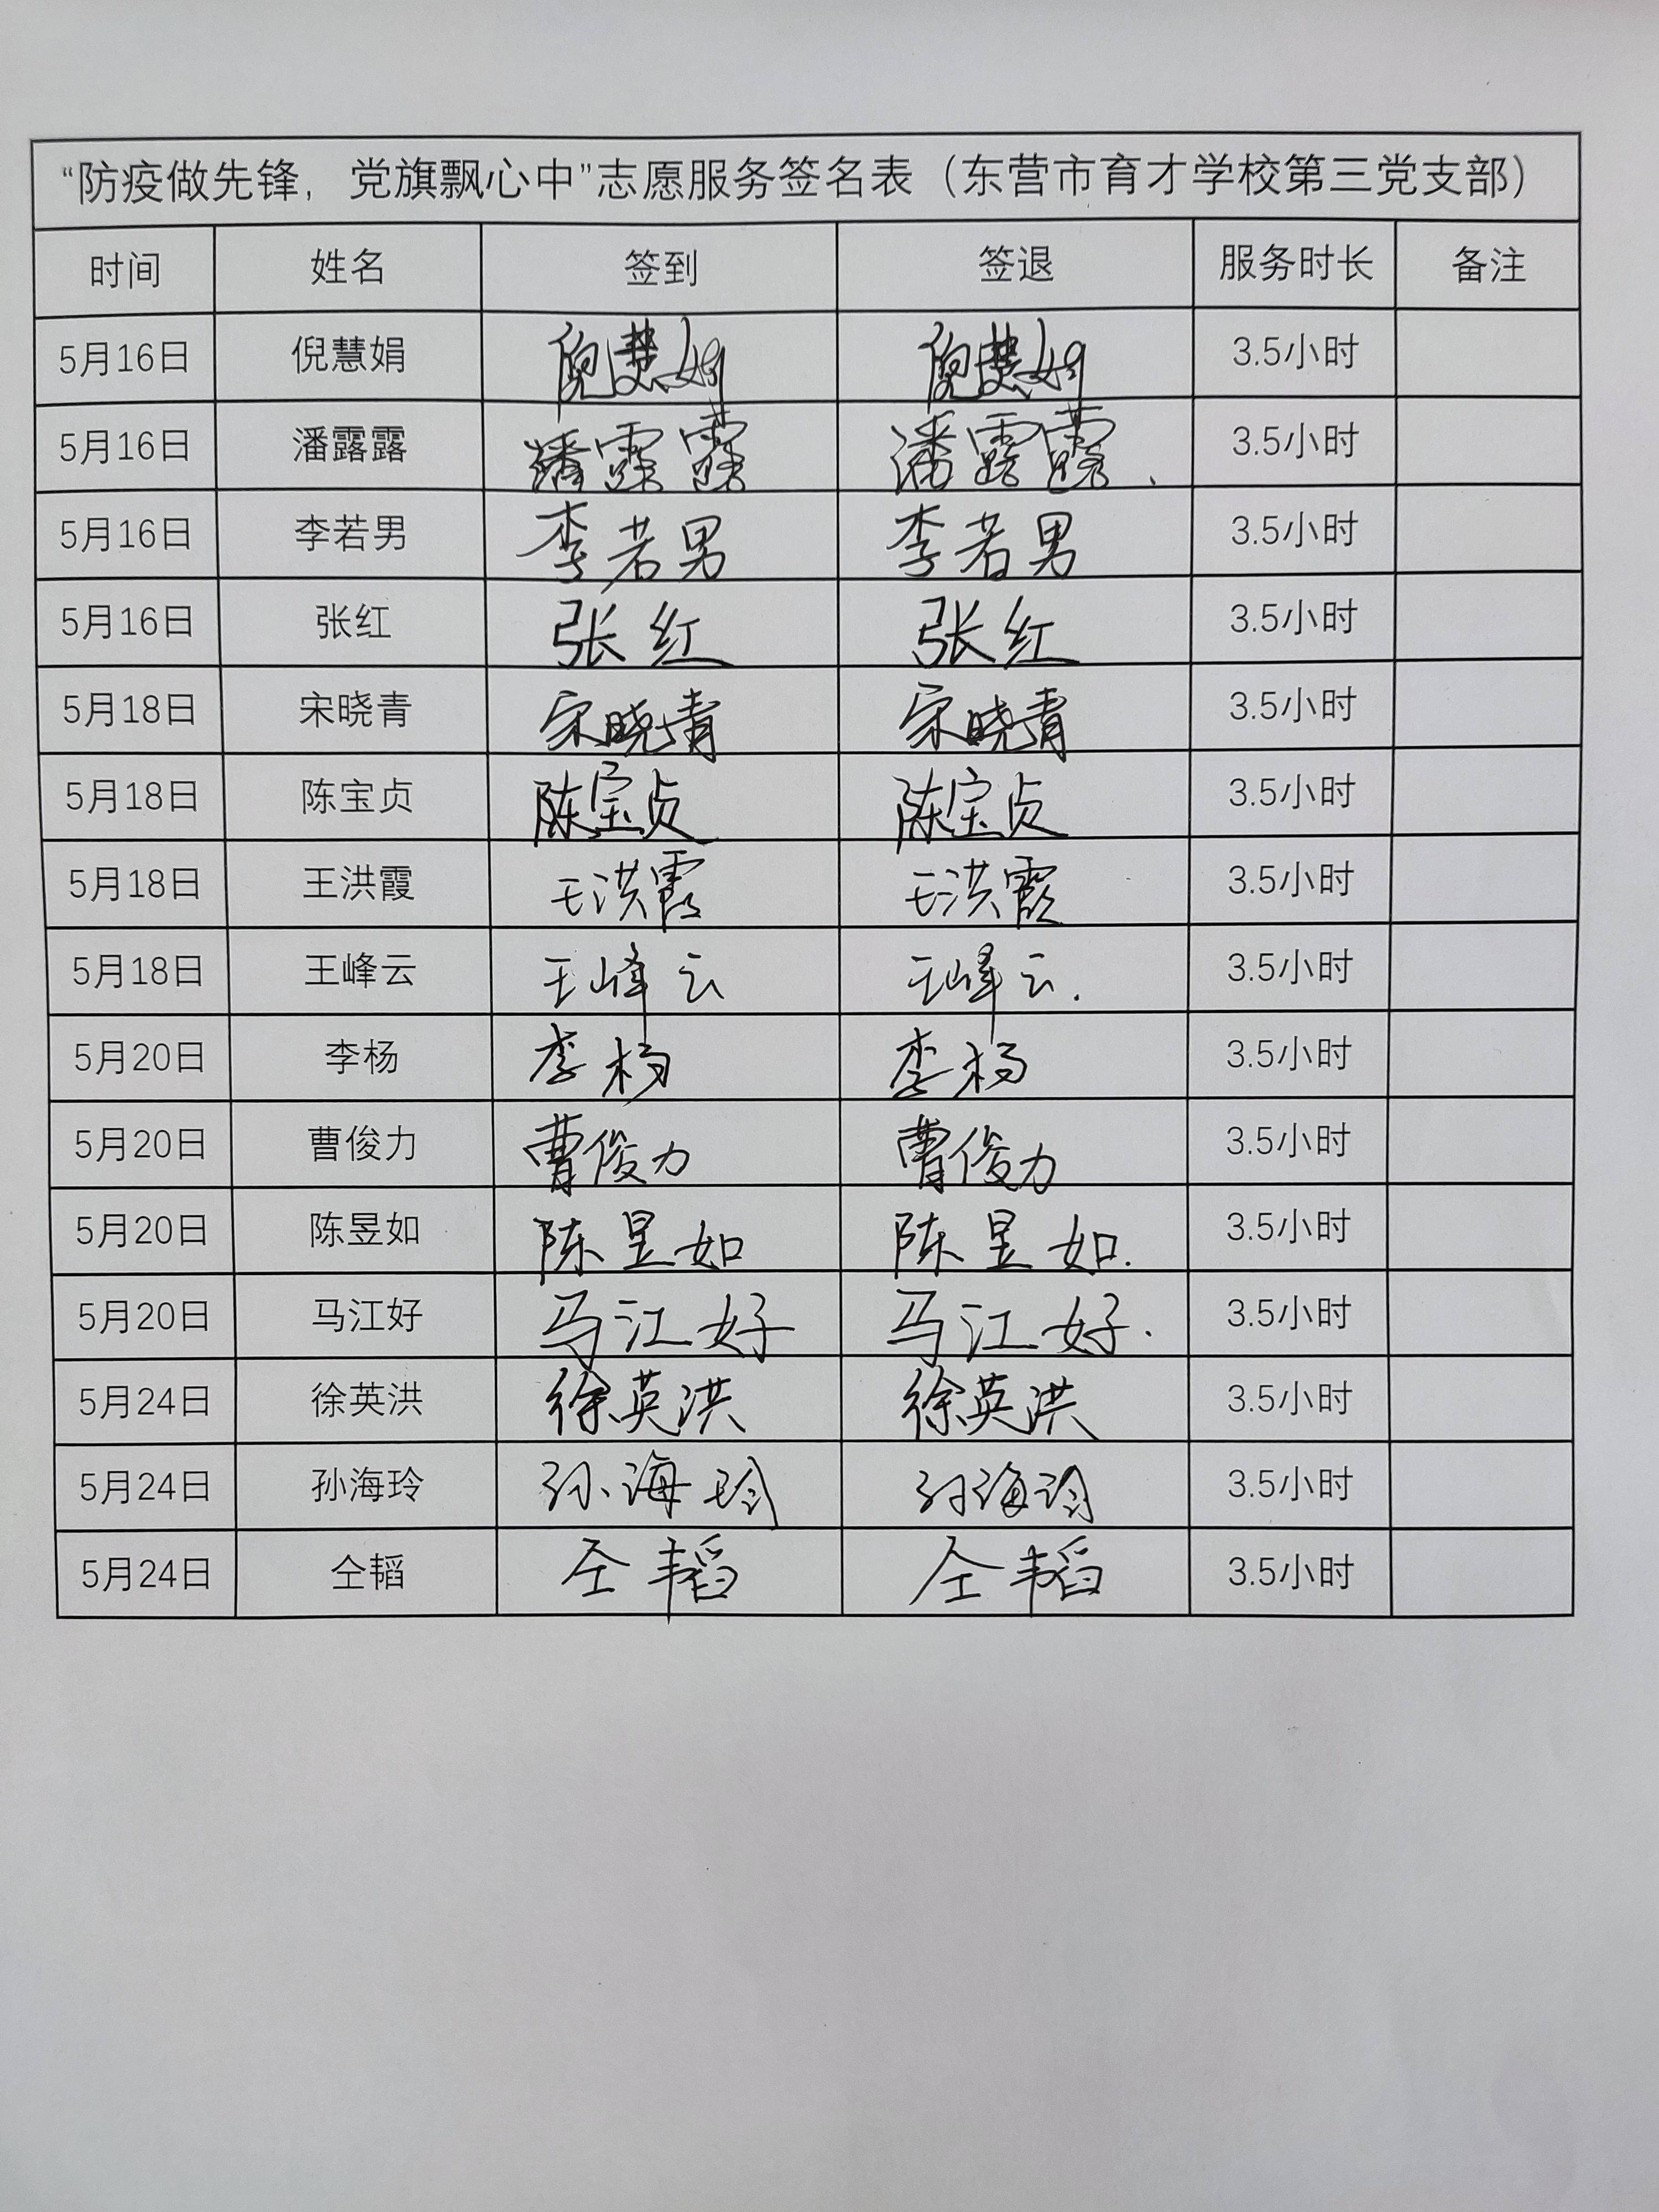 “防疫做先锋，党旗飘心中”志愿服务签名表（东营市育才学校第三党支部）
时间 姓名 签到 签退 服务时长 备注
5月16日 倪慧娟 倪慧娟 倪慧娟 3.5小时
5月16日 潘露露 潘露露 潘露露. 3.5小时
5月16日 李若男 李若男 李若男 3.5小时
5月16日 张红 张红 张红 3.5小时
5月18日 宋晓青 宋晓青 宋晓青 3.5小时
5月18日 陈宝贞 陈宝贞 陈宝贞 3.5小时
5月18日 王洪霞 王洪霞 王洪霞 3.5小时
5月18日 王峰云 王峰云 王峰云. 3.5小时
5月20日 李杨 李杨 李杨 3.5小时
5月20日 曹俊力 曹俊力 曹俊力 3.5小时
5月20日 陈昱如 陈昱如 陈昱如. 3.5小时
5月20日 马江好 马江好 马江好. 3.5小时
5月24日 徐英洪 徐英洪 徐英洪 3.5小时
5月24日 孙海玲 孙海玲 孙海玲 3.5小时
5月24日 仝韬 仝韬 仝韬 3.5小时